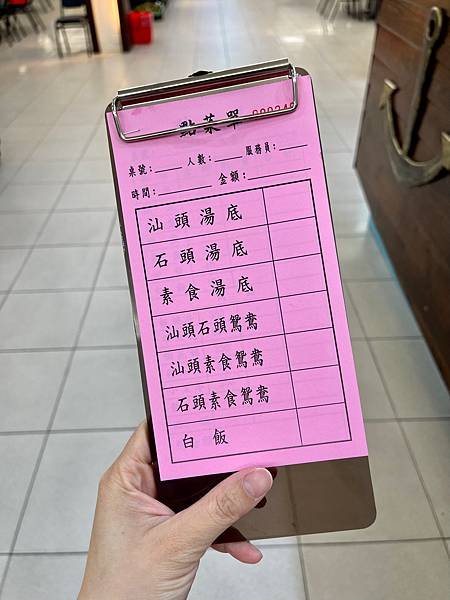 點菜單
桌號：____ 人數：____ 服務員：____
時間：________ 金額：________
汕頭湯底
石頭湯底
素食湯底
汕頭石頭鴛鴦
汕頭素食鴛鴦
石頭素食鴛鴦
白飯